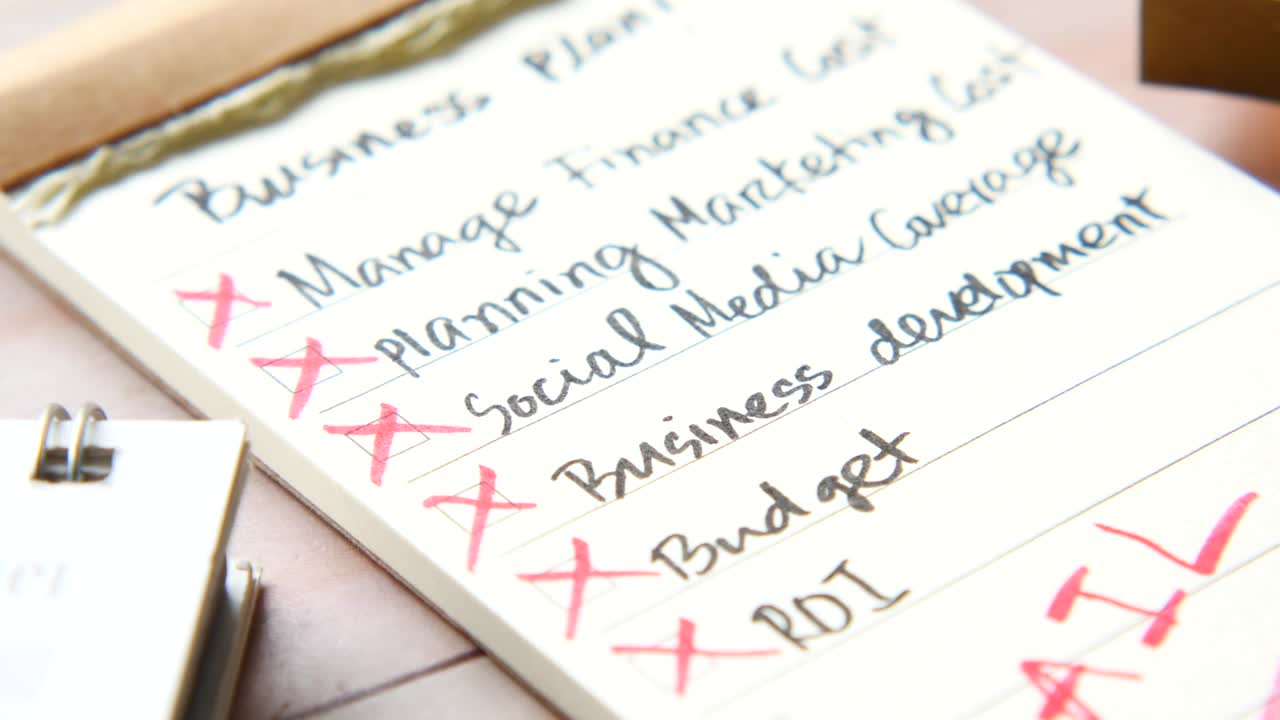 Business Plan:
Manage Finance Cost
planning Marketing Cost
Social Media Coverage
Business development
Budget
ROI
AIL